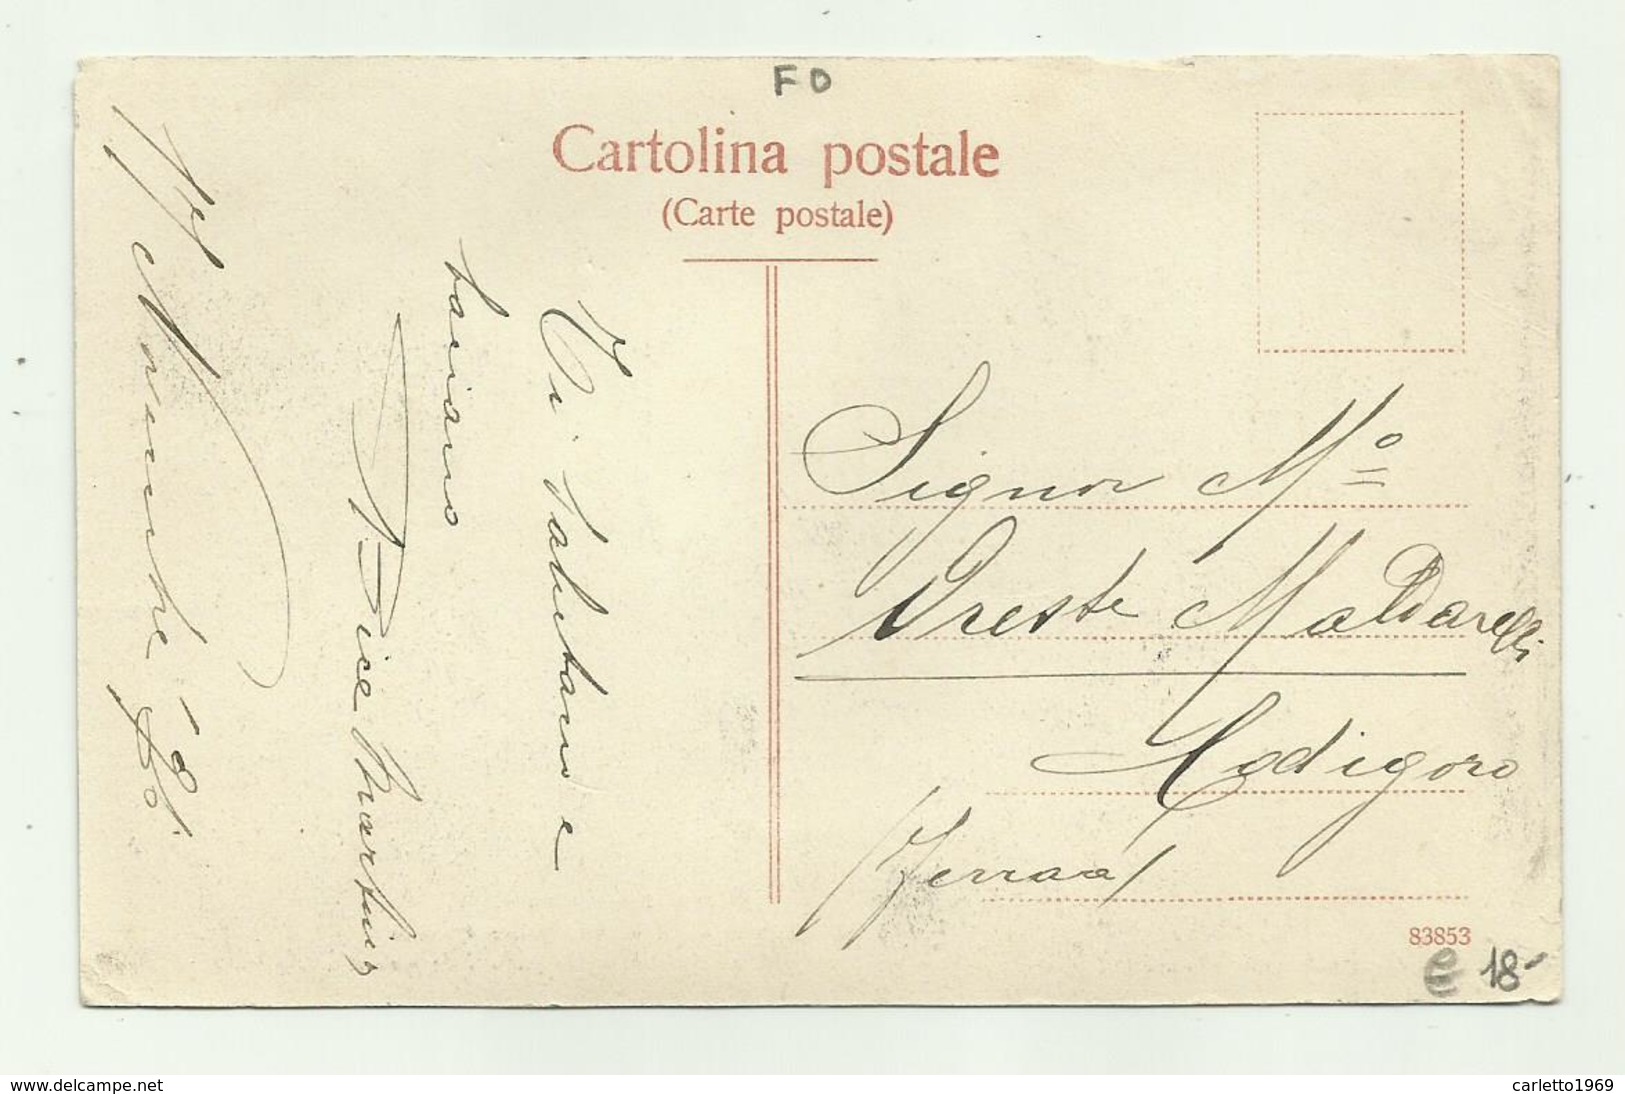 FD
Cartolina postale
(Carte postale)
Vi salutano e
baciano
Bice Martin
Signor Mº
Oreste Maldarelli
Codigoro
(Ferrara)
83853
€ 18-
www.delcampe.net
carletto1969